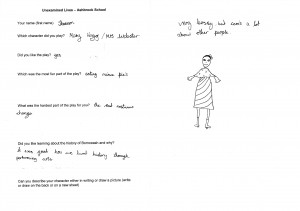 Unexamined Lives – Ashbrook School
Your name (first name)
Which character did you play? Mary Higgs / Mrs Webster
Did you like the play? yes
Which was the most fun part of the play? eating mince pies
What was the hardest part of the play for you? the end costume
changes
Did you like learning about the history of and why?
it was good how we learnt history through
performing arts
Can you describe your character either in writing or draw a picture (write
or draw on the back or on a new sheet)
very bossy but cares a lot
about other people